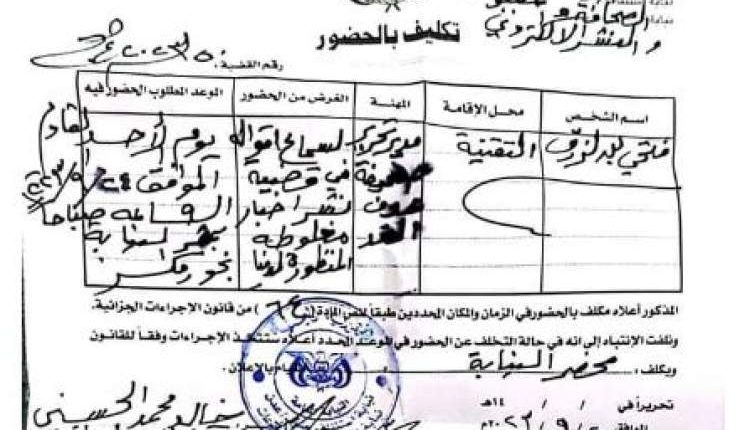 الصحافة و
والنشر الالكتروني
تكليف بالحضور
رقم القضية:
اسم الشخص
محل الإقامة
المهنة
الغرض من الحضور
الموعد المطلوب الحضور فيه
فتحي
التقنية
مدير تحرير
صحيفة
صوت
الغد
لسماع اقواله
في قضية
نشر اخبار
مغلوطه
المنظورة لدينا
يوم الأحد القادم
الموافق ٢٤/٩/٢٠٢٣
الساعه ٩ صباحاً
بمقر النيابة
بخور مكسر
المذكور أعلاه مكلف بالحضور في الزمان والمكان المحددين طبقاً لنص المادة (٦٤) من قانون الإجراءات الجزائية.
ونلفت الإنتباه إلى انه في حالة التخلف عن الحضور في الموعد المحدد أعلاه ستتخذ الإجراءات وفقاً للقانون
ويكلف / محضر النيابة بالإعلان.
تحريراً في / / ١٤هـ
الموافق / ٩ / ٢٠٢٣م
محمد الحسيني